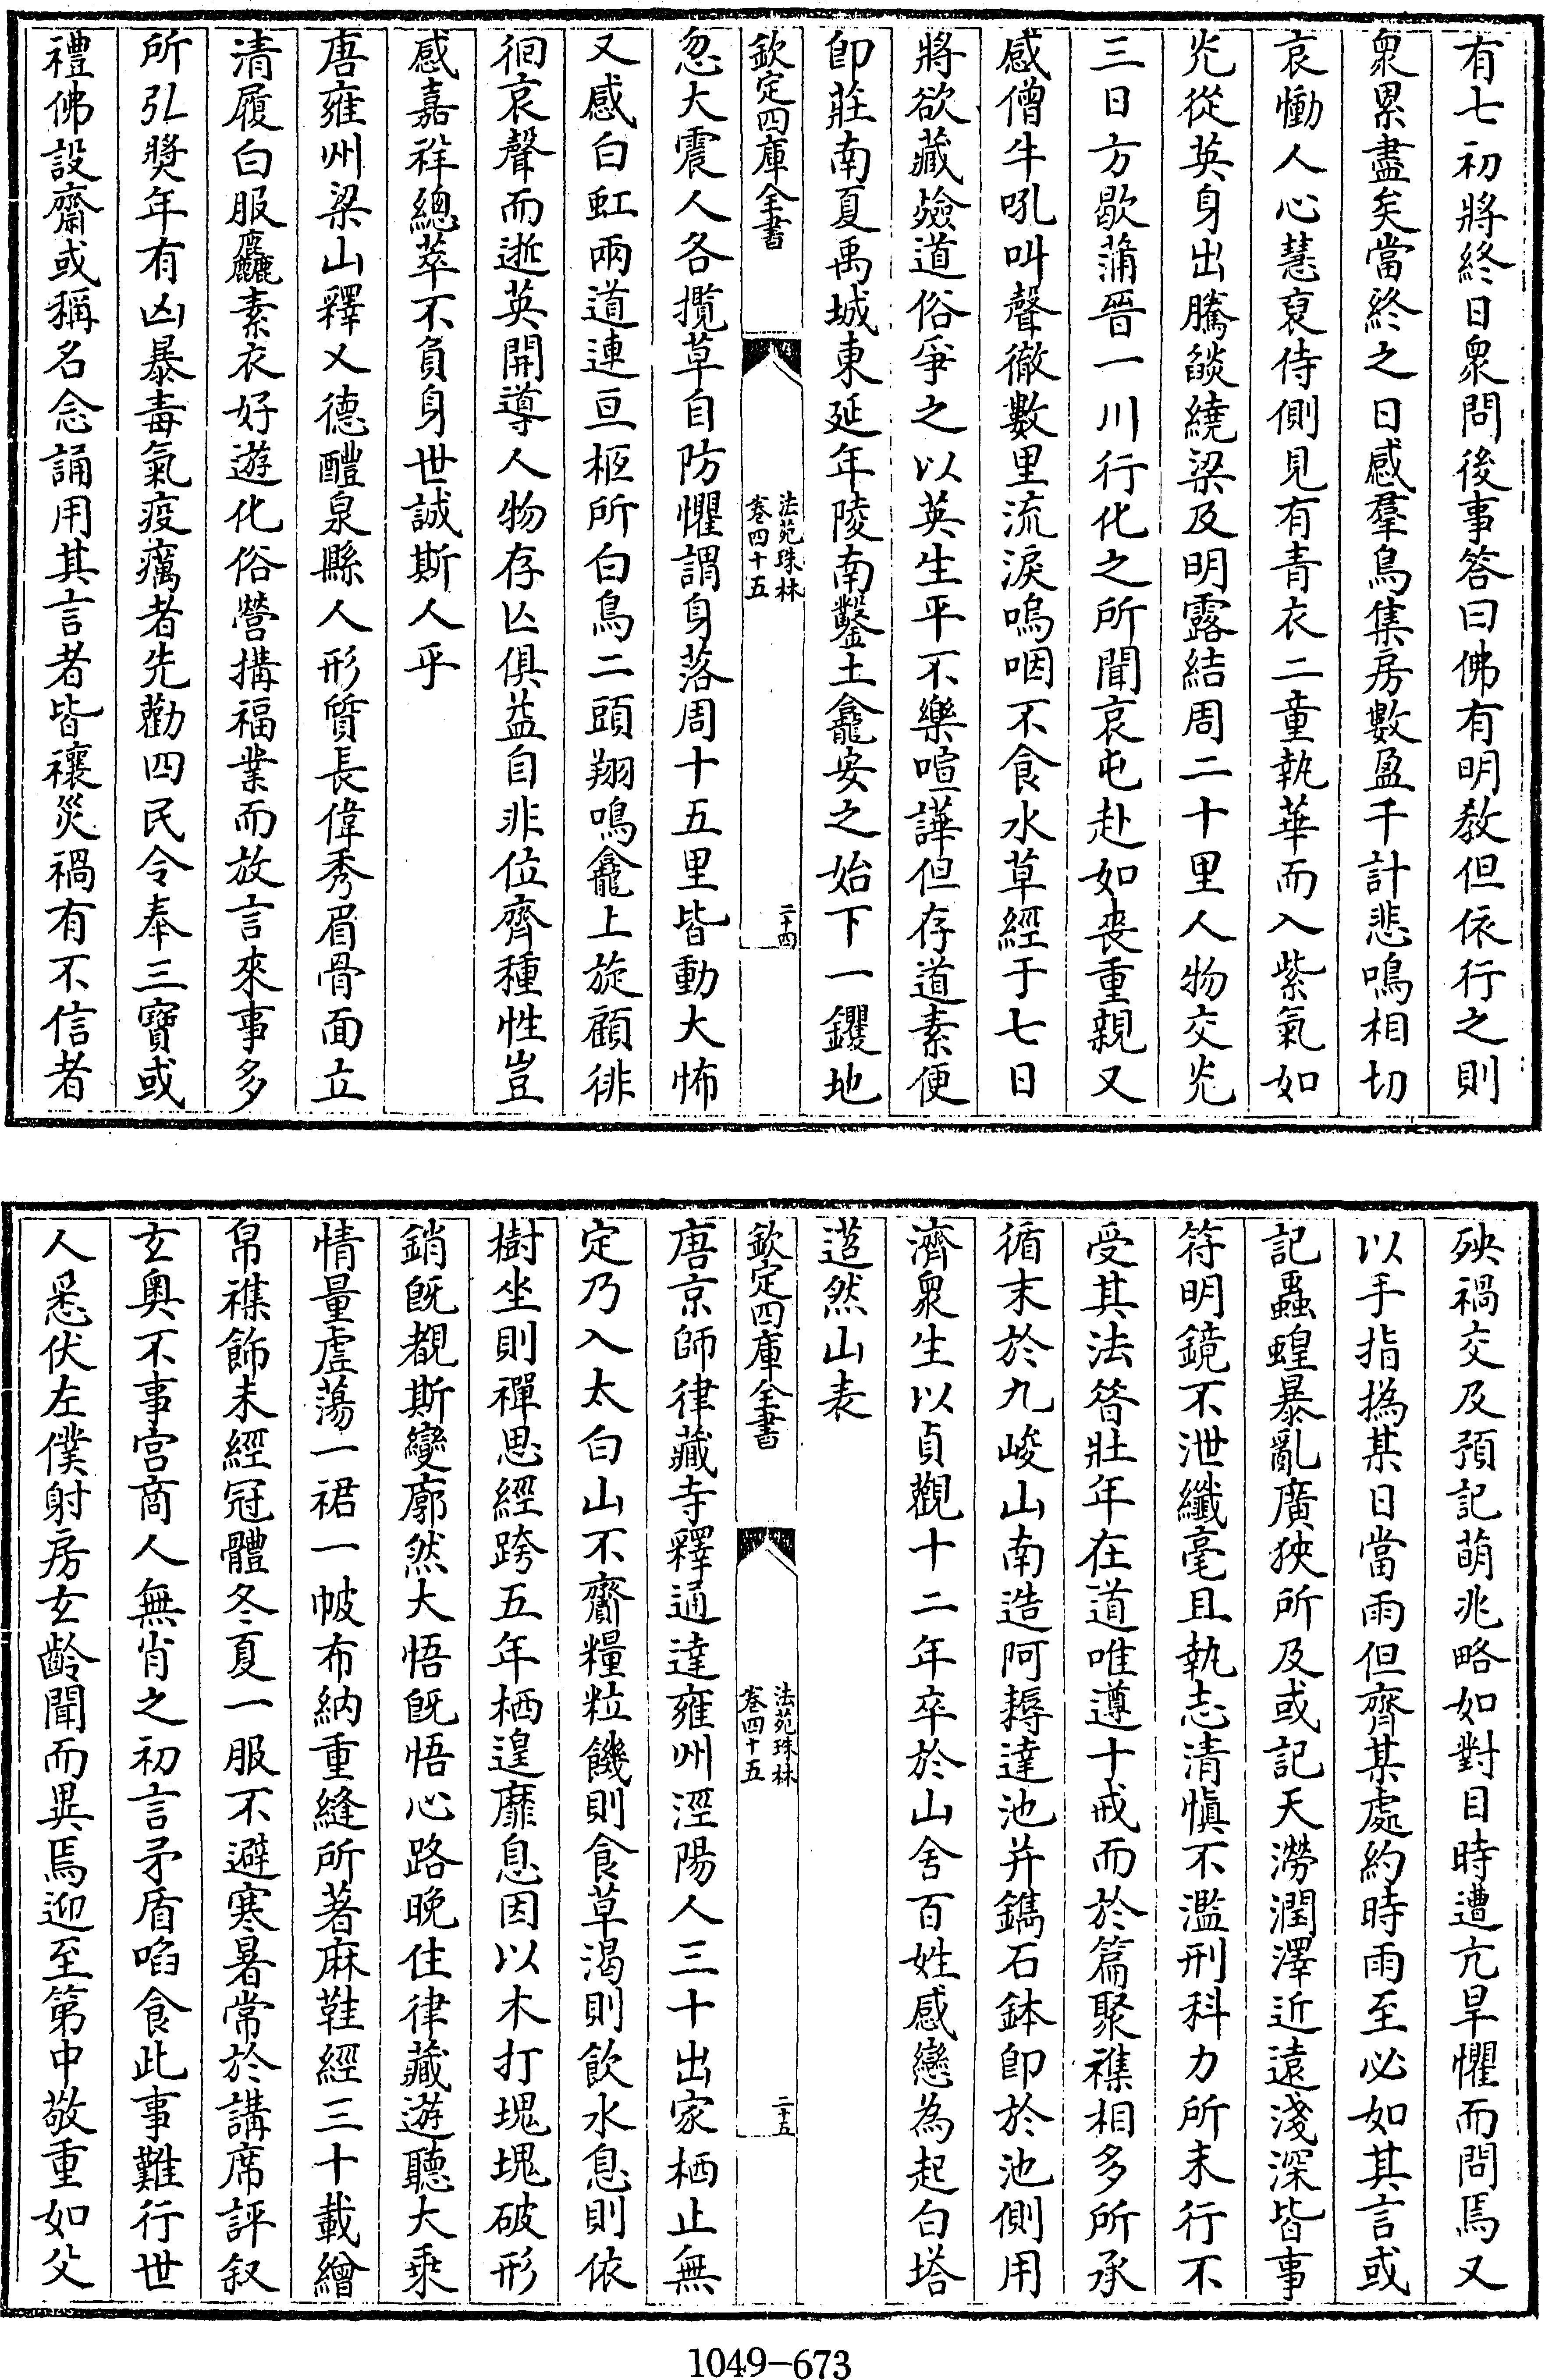 有七初將終日衆問後事答曰佛有明教但依行之則
衆累盡矣當終之日感羣鳥集房數盈千計悲鳴相切
哀慟人心慧裒侍側見有青衣二童執華而入紫氣如
光從英身出騰燄繞梁及明露結周二十里人物交光
三日方歇蒲晉一川行化之所聞哀屯赴如喪重親又
感僧牛吼叫聲徹數里流淚嗚咽不食水草經于七日
將欲藏殮道俗爭之以英生平不樂喧譁但存道素便
卽莊南夏禹城東延年陵南鑿土龕安之始下一钁地
欽定四庫全書
法苑珠林
卷四十五
二十四
忽大震人各攬草自防懼謂身落周十五里皆動大怖
又感白虹兩道連亘柩所白鳥二頭翔鳴龕上旋顧徘
徊哀聲而逝英開導人物存亾俱益自非位齊種性豈
感嘉祥總萃不負身世誠斯人乎
唐雍州梁山釋乂德醴泉縣人形質長偉秀眉骨面立
清履白服麤素衣好遊化俗營搆福業而放言來事多
所引奬年有凶暴毒氣疫癘者先勸四民令奉三寶或
禮佛設齋或稱名念誦用其言者皆禳災禍有不信者
殃禍交及預記萌兆略如對目時遭亢旱懼而問焉又
以手指撝某日當雨但齊某處約時雨至必如其言或
記蟲蝗暴亂廣狹所及或記天澇潤澤近遠淺深皆事
符明鏡不泄纖毫且執志清愼不濫刑科力所未行不
受其法昝壯年在道唯遵十戒而於篇聚襍相多所承
循末於九峻山南造阿耨達池并鐫石鉢卽於池側用
濟衆生以貞觀十二年卒於山舍百姓感戀為起白塔
迢然山表
欽定四庫全書
法苑珠林
卷四十五
二十五
唐京師律藏寺釋通達雍州涇陽人三十出家栖止無
定乃入太白山不齎糧粒饑則食草渴則飲水息則依
樹坐則禪思經跨五年栖遑靡息因以木打塊塊破形
銷旣覩斯變廓然大悟旣悟心路晚住律藏遊聽大乘
情量虛蕩一裙一帔布納重縫所著麻鞋經三十載繒
帛襍飾未經冠體冬夏一服不避寒暑常於講席評叙
玄奥不事宫商人無肖之初言矛盾啗食此事難行世
人悉伏左僕射房玄齡聞而異焉迎至第中敬重如父
1049-673